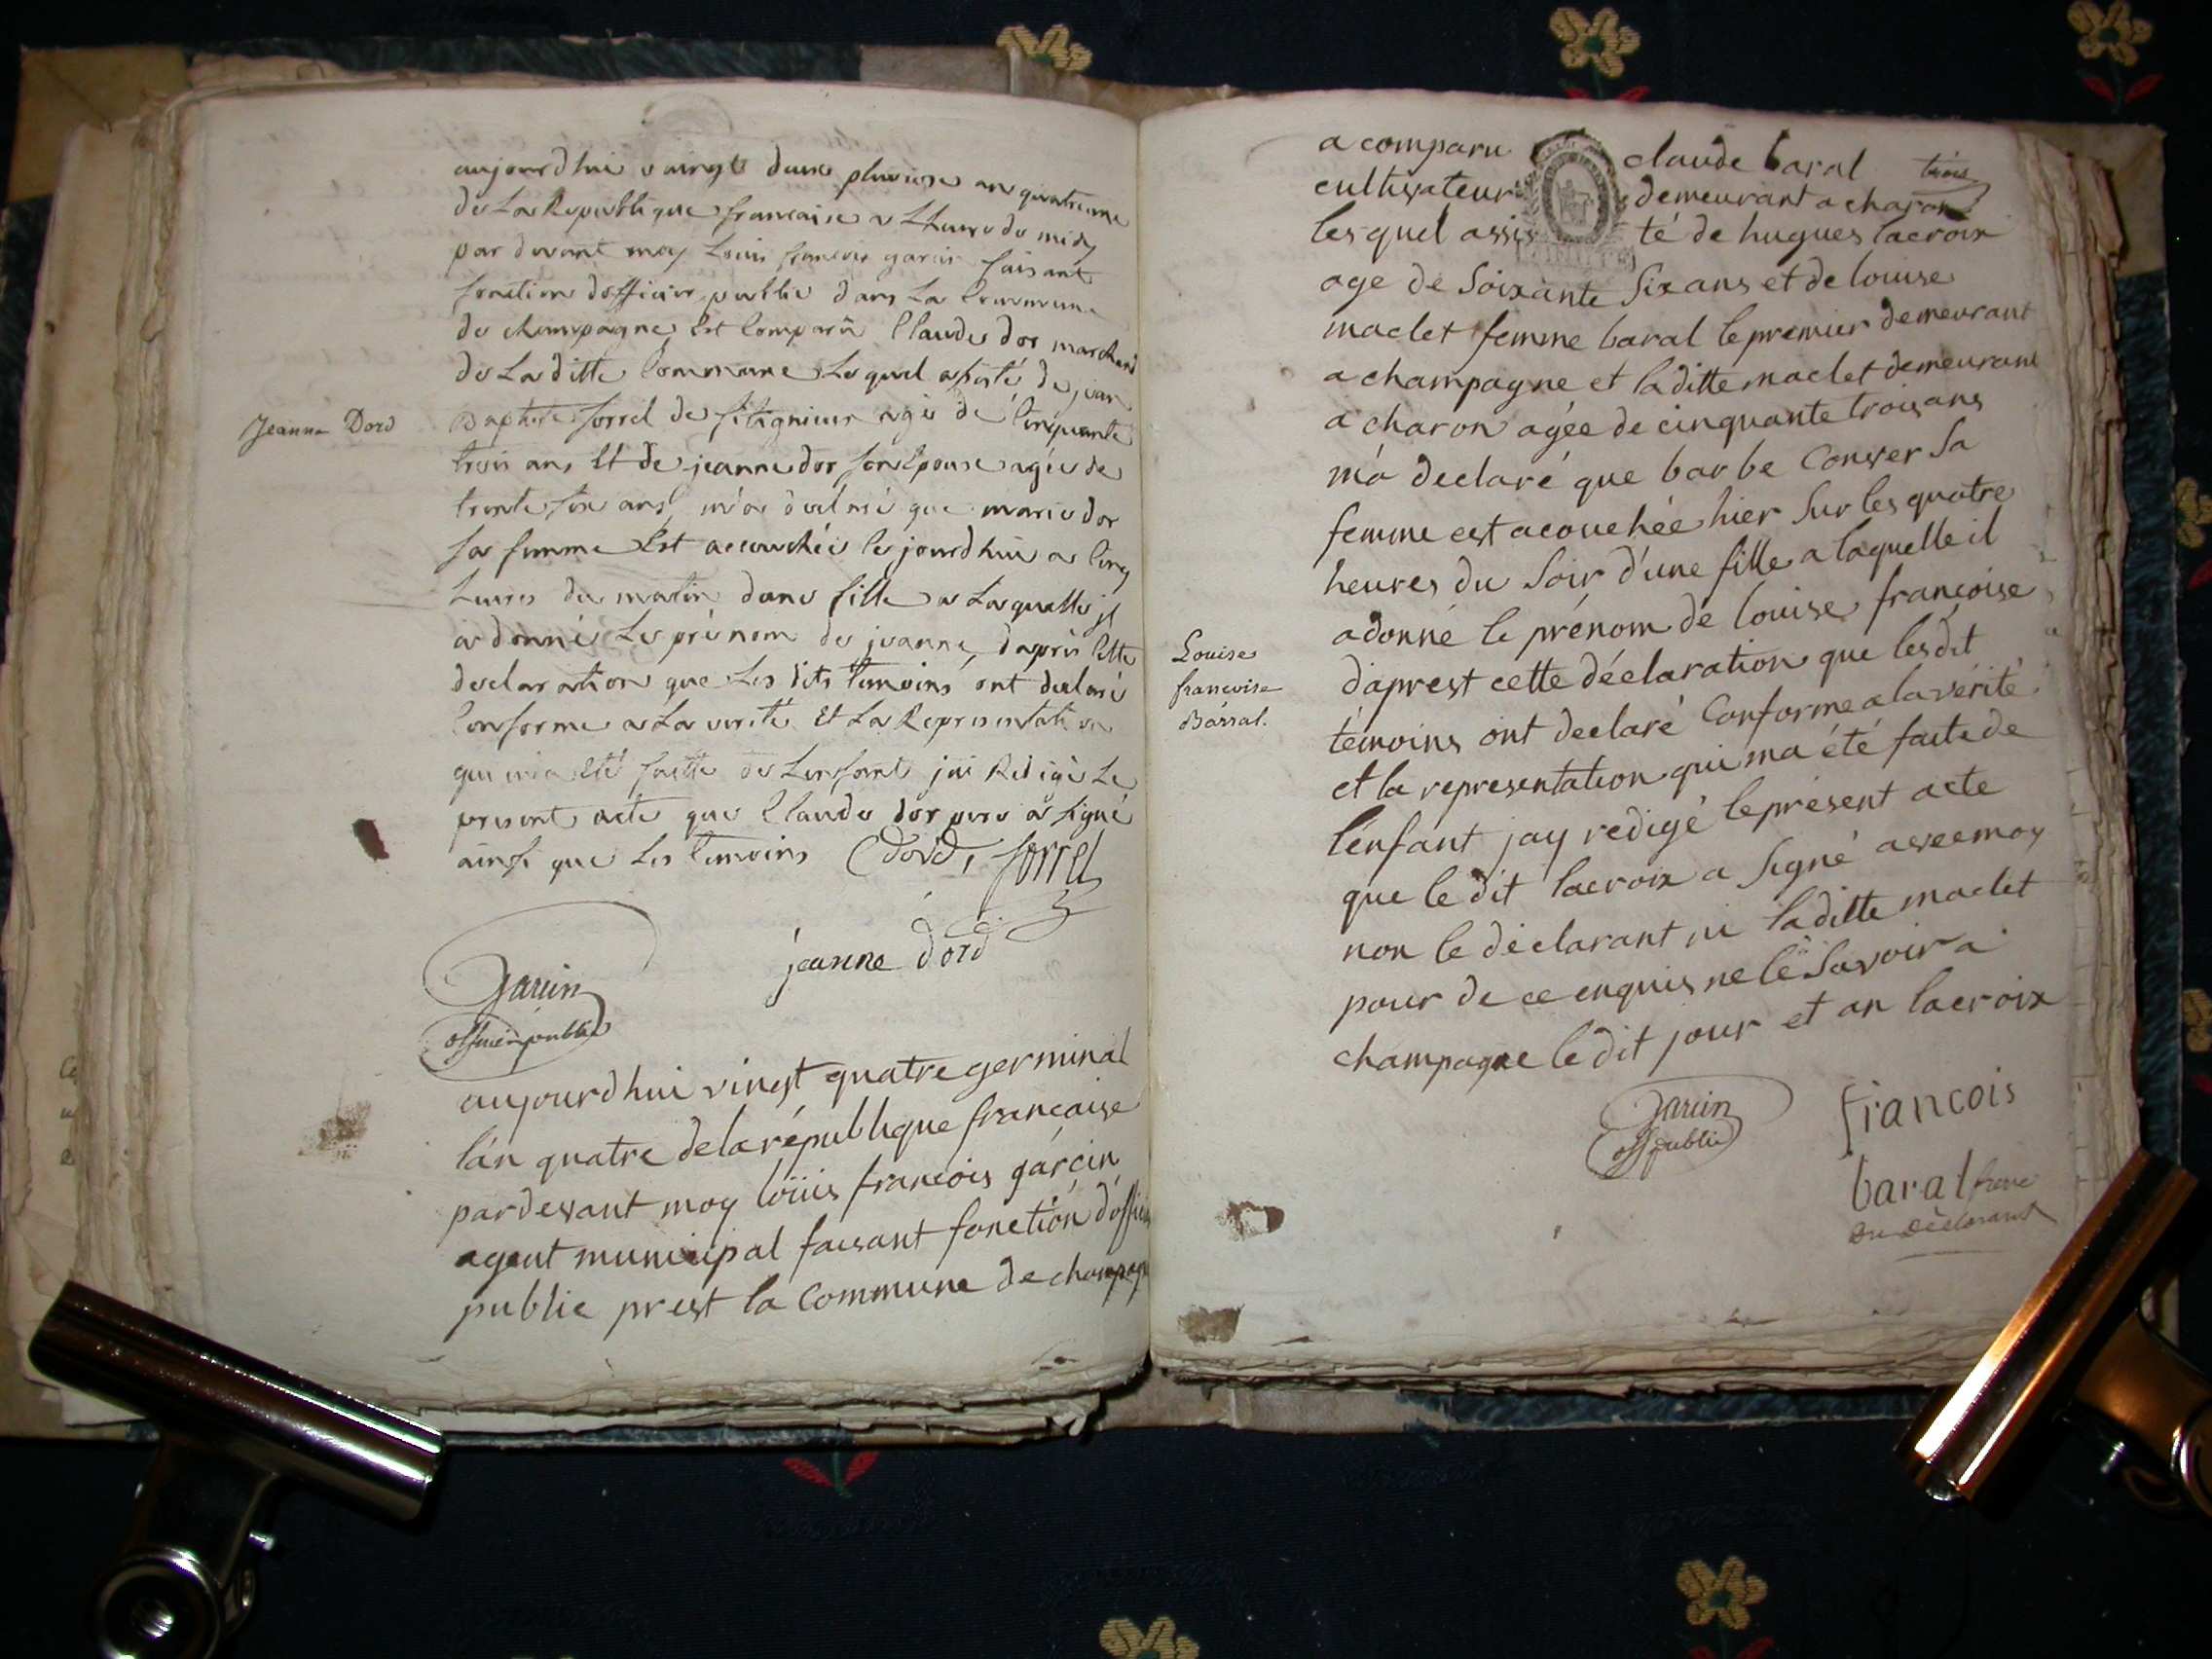 aujourdhui vaingt deux pluviose an quatrieme
de La Republique francaise a Lheure de midy
par devant moy Louis francois garcin faisant
fonction dofficier public dans La Commune
de champagne Est Comparu Claude dor marchand
de La ditte Commune Lequel assisté de jean
Jeanne Dord
Baptiste forrel de agé de Cinquante
trois ans Et de jeanne dor son Epouse agée de
trente six ans m'a declaré que marie dor
sa femme Est accouchée le jourdhui a Cinq
heures du matin dune fille a Laquelle il
a donné Le prénom de jeanne, dapres Cette
declaration que Les dits temoins ont declaré
Conforme a La verité Et La Representation
qui m'a Eté faitte de Lenfant jai Redigé Le
present acte que Claude dor pere a signé
ainsi que Les temoins C dord, forrel
jeanne dord
Garcin
officier public
aujourdhui vingt quatre germinal
l'an quatre de la république francaise
par devant moy loüis francois garcin
agent municipal faisant fonction d'officier
public prest la Commune de champagne
a comparu claude baral trois
cultivateur demeurant a charon
lesquel assisté de hugues lacroix
age de Soixante Six ans et de louise
maclet femme baral le premier demeurant
a champagne et laditte maclet demeurant
a charon agée de cinquante trois ans
m'a declaré que barbe Conver Sa
femme est acouchée hier Sur les quatre
heures du Soir d'une fille a laquelle il
a donné le prénom de louise françoise
Louise
francoise
Barral.
d'aprest cette déclaration que lesdit
témoins ont declaré Conforme a la vérité
et la representation qui ma été faite de
l'enfant jay redigé le présent acte
que ledit lacroix a Signé avec moy
non le déclarant ni laditte maclet
pour de ce enquis ne le Savoir a
champagne ledit jour et an lacroix
Garcin
off public
francois
baral frere
du déclarant